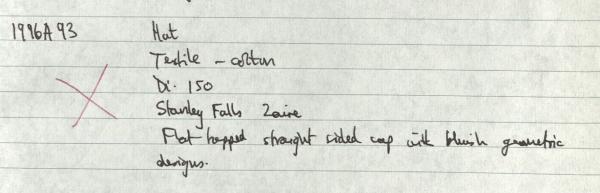 1996A93 Hat
Textile - cotton
Di. 150
Stanley Falls Zaire
Flat topped straight sided cap with bluish geometric
designs.